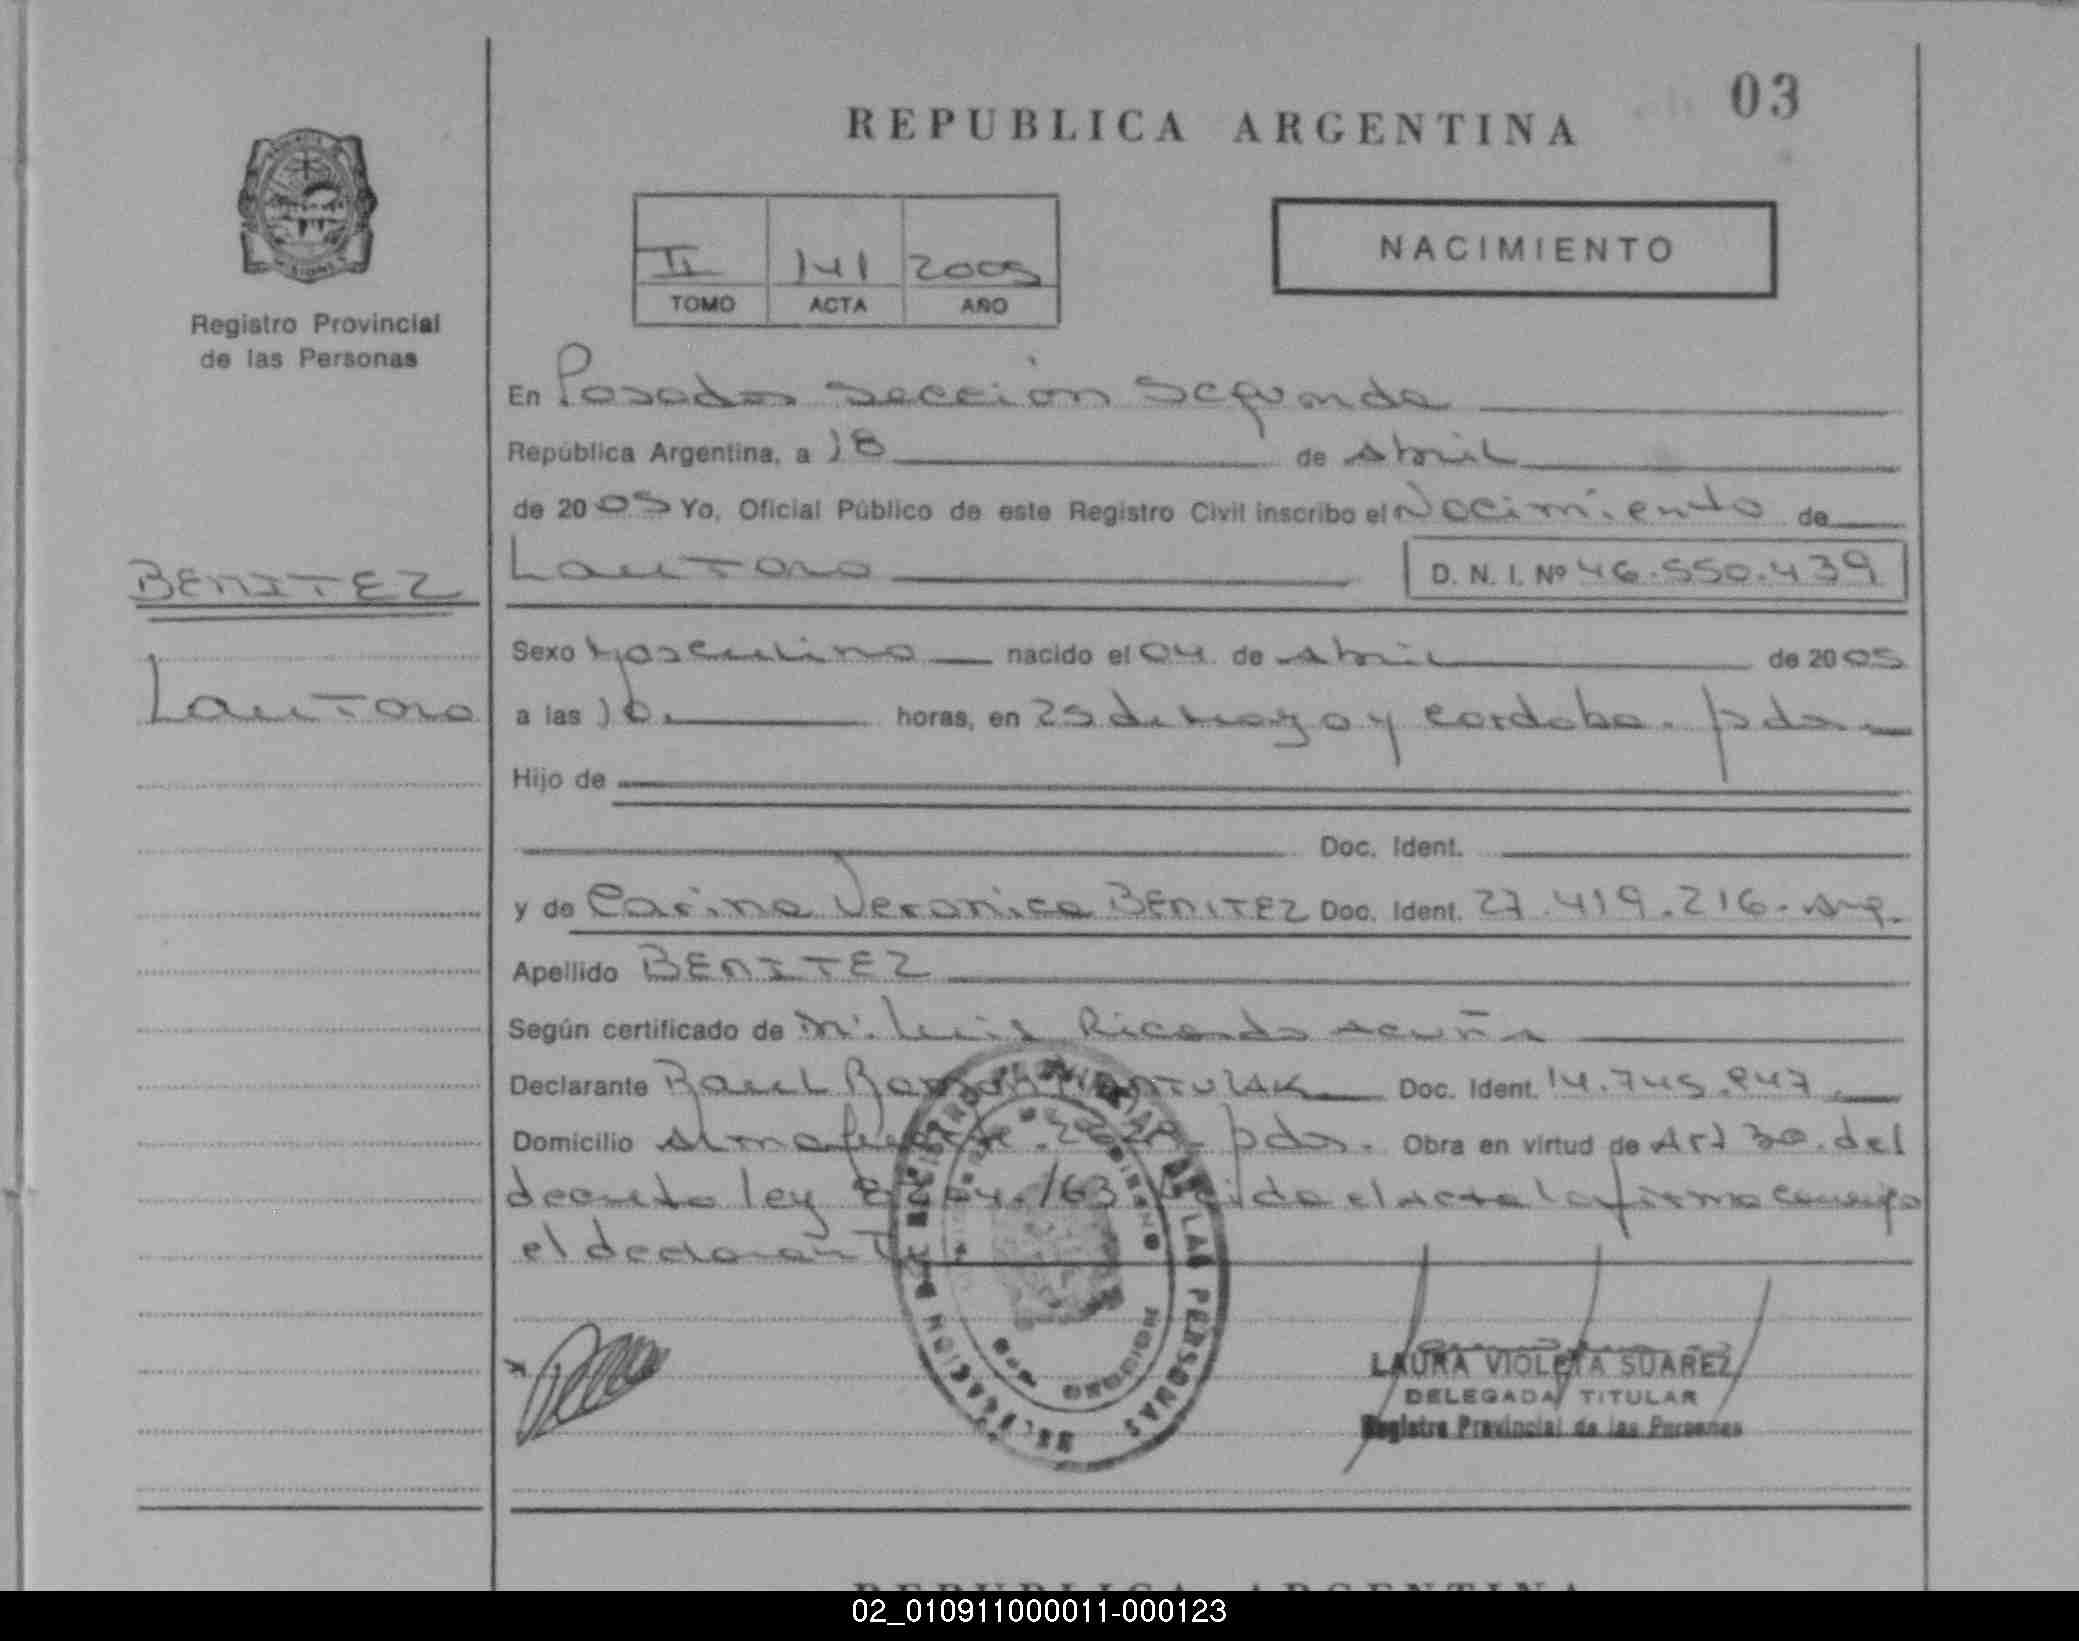 03
REPUBLICA ARGENTINA
NACIMIENTO
II 141 2005
TOMO ACTA AÑO
Registro Provincial
de las Personas
En Posadas sección Segunda
República Argentina, a 18 de Abril
de 2005 Yo, Oficial Público de este Registro Civil inscribo el Nacimiento de
BENITEZ
Lautaro
D. N. I. Nº 46.550.439
Sexo Masculino nacido el 04 de Abril de 2005
Lautaro
a las 10. horas, en 25 de Mayo y Cordoba. pdas
Hijo de
Doc. Ident.
y de Carina Veronica BENITEZ Doc. Ident. 27.419.216. Arg.
Apellido BENITEZ
Según certificado de Dr. Luis Ricardo Acuña
Declarante Raul Ramon Doc. Ident. 14.745.847
Domicilio Almafuerte pdas. Obra en virtud de Art 30. del
decreto ley /63 el acta la firma conmigo
el declarante
DELEGACION REGISTRO PROVINCIAL DE LAS PERSONAS
LAURA VIOLETA SUAREZ
DELEGADA TITULAR
Registro Provincial de las Personas
REPUBLICA ARGENTINA
02_010911000011-000123